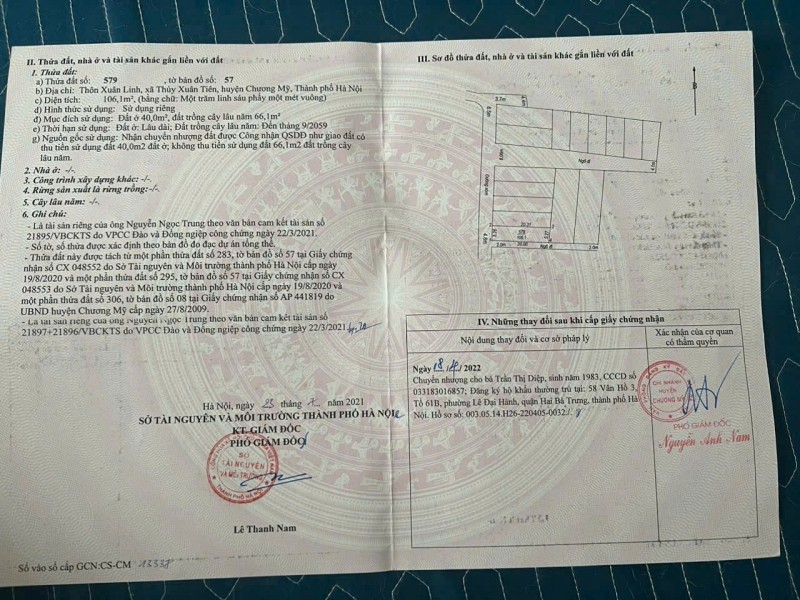 II. Thửa đất, nhà ở và tài sản khác gắn liền với đất
1. Thửa đất:
a) Thửa đất số: 579 , tờ bản đồ số: 57
b) Địa chỉ: Thôn Xuân Linh, xã Thủy Xuân Tiên, huyện Chương Mỹ, Thành phố Hà Nội
c) Diện tích: 106,1m², (bằng chữ: Một trăm linh sáu phẩy một mét vuông)
d) Hình thức sử dụng: Sử dụng riêng
đ) Mục đích sử dụng: Đất ở 40,0m², đất trồng cây lâu năm 66,1m²
e) Thời hạn sử dụng: Đất ở: Lâu dài; Đất trồng cây lâu năm: Đến tháng 9/2059
g) Nguồn gốc sử dụng: Nhận chuyển nhượng đất được Công nhận QSDĐ như giao đất có
thu tiền sử dụng 40,0m2 đất ở; không thu tiền sử dụng 66,1m2 đất trồng cây
lâu năm.
2. Nhà ở: -/-
3. Công trình xây dựng khác: -/-
4. Rừng sản xuất là rừng trồng:-/-
5. Cây lâu năm: -/-
6. Ghi chú:
- Là tài sản riêng của ông Nguyễn Ngọc Trung theo văn bản cam kết tài sản số
21895/VBCKTS do VPCC Đào và Đồng ngiệp công chứng ngày 22/3/2021.
- Số tờ, số thửa được xác định theo bản đồ đạc dự án tổng thể.
- Thửa đất này được tách từ một phần thửa đất số 283, tờ bản đồ số 57 tại Giấy chứng
nhận số CX 048552 do Sở Tài nguyên và Môi trường thành phố Hà Nội cấp ngày
19/8/2020 và một phần thửa đất số 295, tờ bản đồ số 57 tại Giấy chứng nhận số CX
048553 do Sở Tài nguyên và Môi trường thành phố Hà Nội cấp ngày 19/8/2020 và
một phần thửa đất số 306, tờ bản đồ số 08 tại Giấy chứng nhận số AP 441819 do
UBND huyện Chương Mỹ cấp ngày 27/8/2009.
- Là tài sản riêng của ông Nguyễn Ngọc Trung theo văn bản cam kết tài sản số
21897+21896/VBCKTS do VPCC Đào và Đồng nghiệp công chứng ngày 22/3/2021.
Hà Nội, ngày 23 tháng năm 2021
SỞ TÀI NGUYÊN VÀ MÔI TRƯỜNG THÀNH PHỐ HÀ NỘI
KT. GIÁM ĐỐC
PHÓ GIÁM ĐỐC
SỞ
TÀI NGUYÊN
VÀ MÔI TRƯỜNG
THÀNH PHỐ HÀ NỘI
Lê Thanh Nam
Số vào sổ cấp GCN:CS-CM
III. Sơ đồ thửa đất, nhà ở và tài sản khác gắn liền với đất
B
Ngõ đi
Đường thôn
579
106,1
Ngõ đi
2.0m
20.00
2.0m
IV. Những thay đổi sau khi cấp giấy chứng nhận
Nội dung thay đổi và cơ sở pháp lý
Xác nhận của cơ quan
có thẩm quyền
Ngày 18/4/2022
Chuyển nhượng cho bà Trần Thị Diệp, sinh năm 1983, CCCD số
033183016857; Đăng ký hộ khẩu thường trú tại: 58 Vân Hồ 3,
Tổ 61B, phường Lê Đại Hành, quận Hai Bà Trưng, thành phố Hà
Nội. Hồ sơ số: 003.05.14.H26-220405-0032./.
CHI NHÁNH
HUYỆN
CHƯƠNG MỸ
PHÓ GIÁM ĐỐC
Nguyễn Anh Nam